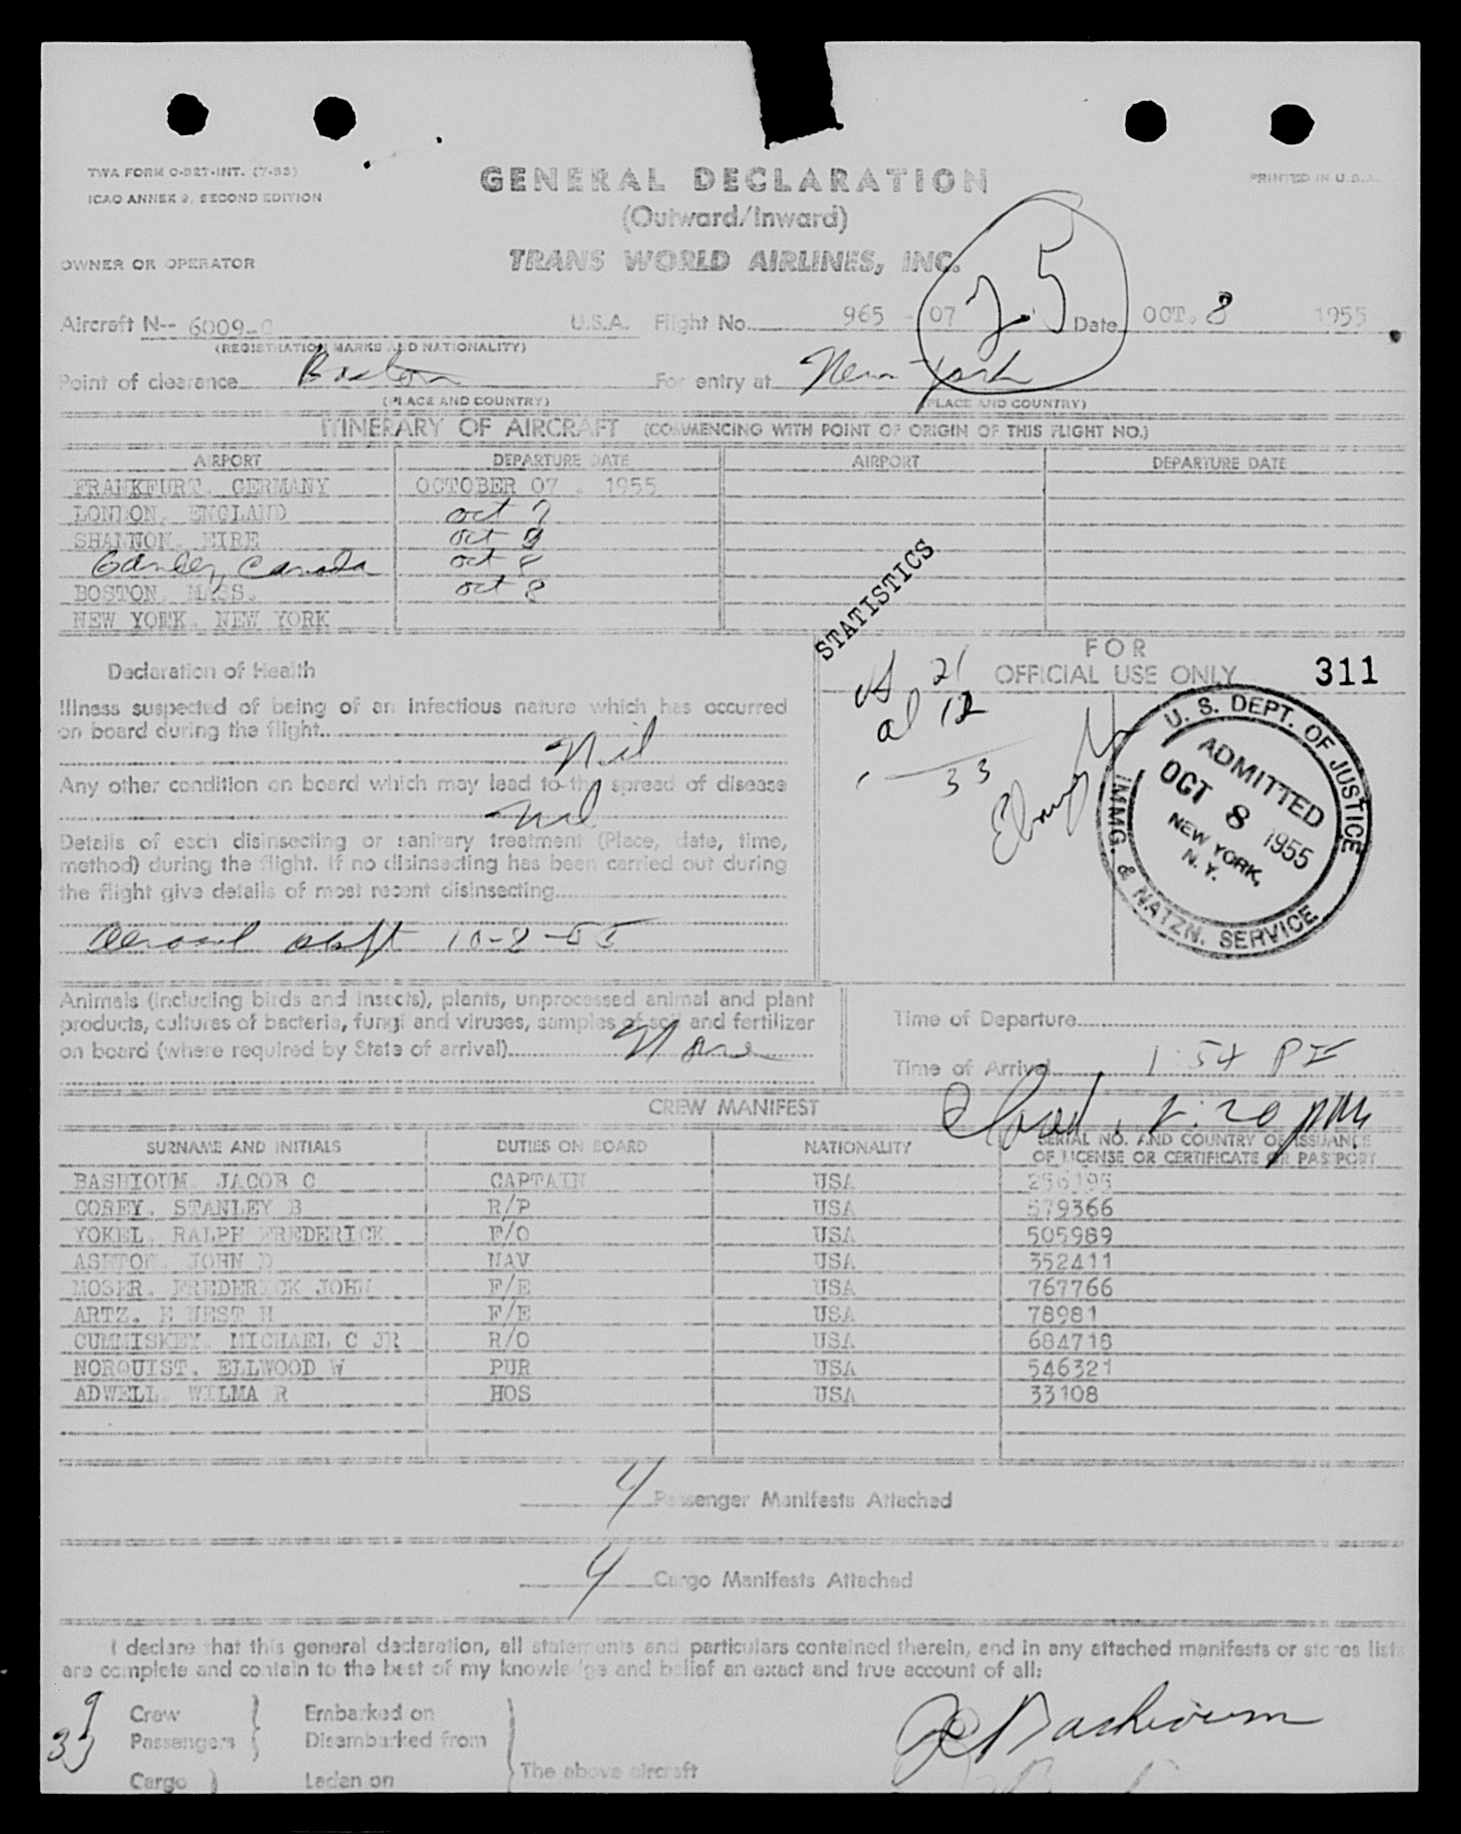 TWA FORM O-827-INT. (7-53)
ICAO ANNEX 9, SECOND EDITION
GENERAL DECLARATION
PRINTED IN U.S.A.
(Outward/Inward)
OWNER OR OPERATOR
TRANS WORLD AIRLINES, INC.
25
Aircraft N-- 6009-C U.S.A. Flight No. 965 - 07 Date OCT. 8 1955
(REGISTRATION MARKS AND NATIONALITY)
Point of clearance Boston For entry at New York
(PLACE AND COUNTRY) (PLACE AND COUNTRY)
ITINERARY OF AIRCRAFT (COMMENCING WITH POINT OF ORIGIN OF THIS FLIGHT NO.)
AIRPORT DEPARTURE DATE AIRPORT DEPARTURE DATE
FRANKFURT, GERMANY OCTOBER 07, 1955
LONDON, ENGLAND Oct 7
SHANNON, EIRE Oct 8
Gander, Canada Oct 8
BOSTON, MASS. Oct 8
NEW YORK, NEW YORK
STATISTICS
US 21
al 12
33
FOR
OFFICIAL USE ONLY 311
U. S. DEPT. OF JUSTICE
ADMITTED
OCT 8 1955
NEW YORK,
N. Y.
IMMG. & NATZN. SERVICE
Declaration of Health
Illness suspected of being of an infectious nature which has occurred
on board during the flight
Nil
Any other condition on board which may lead to the spread of disease
Nil
Details of each disinsecting or sanitary treatment (Place, date, time,
method) during the flight. If no disinsecting has been carried out during
the flight give details of most recent disinsecting
Aerosol 10-8-55
Animals (including birds and insects), plants, unprocessed animal and plant
products, cultures of bacteria, fungi and viruses, samples of soil and fertilizer
on board (where required by State of arrival) None
Time of Departure
Time of Arrival 1:54 P
CREW MANIFEST
2:20 pm
SURNAME AND INITIALS DUTIES ON BOARD NATIONALITY SERIAL NO. AND COUNTRY OF ISSUANCE
OF LICENSE OR CERTIFICATE OR PASSPORT
BASHIOUM, JACOB C CAPTAIN USA
COREY, STANLEY B R/P USA 579366
YOKEL, RALPH FREDERICK F/O USA 505989
ASHTON, JOHN D NAV USA 352411
MOSER, FREDERICK JOHN F/E USA 767766
ARTZ, ERNEST H F/E USA 78981
CUMMISKEY, MICHAEL C JR R/O USA 684718
NORQUIST, ELLWOOD W PUR USA 546321
ADWELL, WILMA R HOS USA 33108
4 Passenger Manifests Attached
4 Cargo Manifests Attached
I declare that this general declaration, all statements and particulars contained therein, and in any attached manifests or stores lists
are complete and contain to the best of my knowledge and belief an exact and true account of all:
9 Crew Embarked on
33 Passengers Disembarked from
Cargo Laden on The above aircraft
JC Bashioum